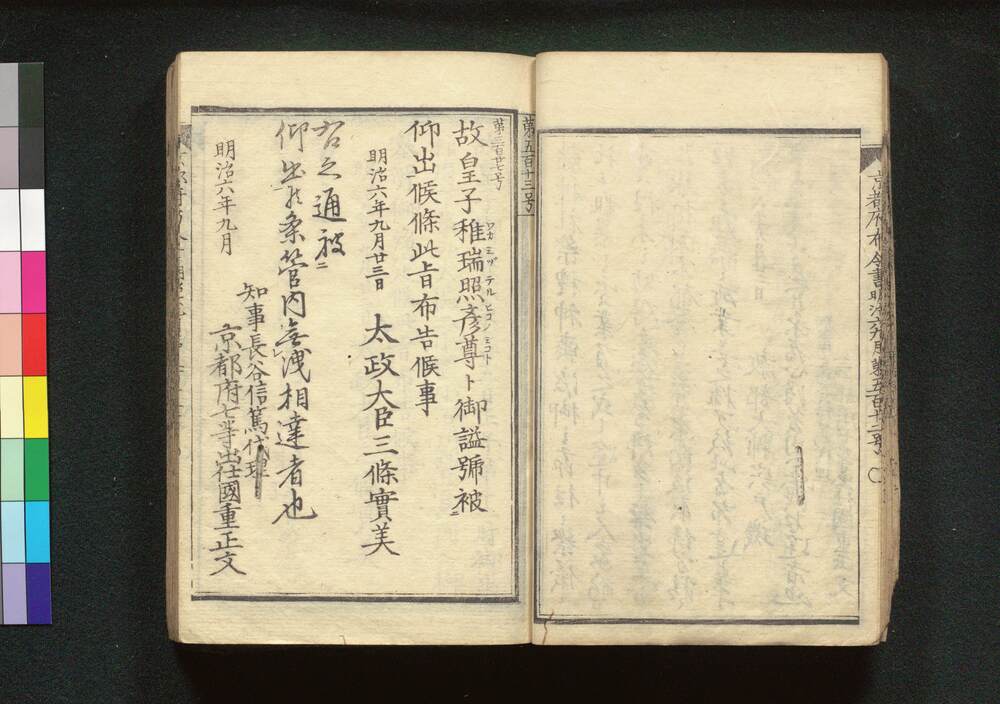 京都府布令書明治六年九月第五百十二号
第五百十三号
第三百廿七号
故皇子稚瑞照彦尊ト御諡號被
ワカミヅテルヒコノミコト
仰出候條此旨布告候事
明治六年九月廿三日 太政大臣三條實美
右之通被
仰出候条管内無洩相達者也
明治六年九月
知事長谷信篤代理
京都府七等出仕國重正文